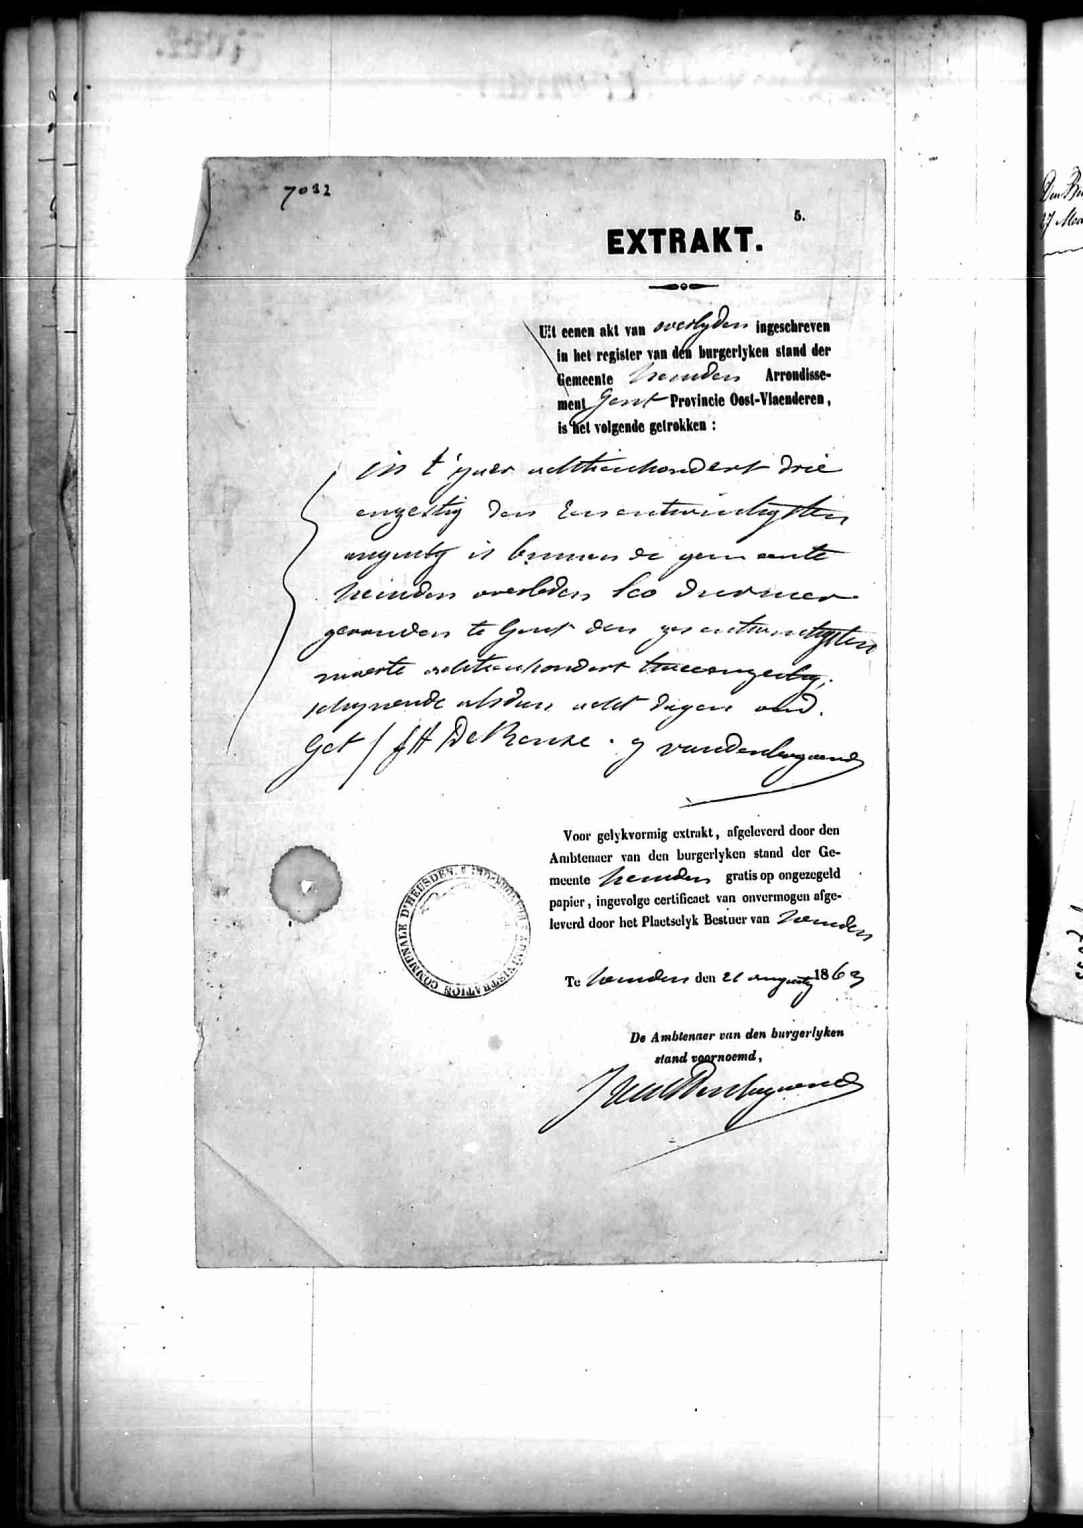 7032
5.
EXTRAKT.
Uit eenen akt van overlyden ingeschreven
in het register van den burgerlyken stand der
Gemeente heusden Arrondisse-
ment Gent Provincie Oost-Vlaenderen,
is het volgende getrokken :
in t'jaer achttienhondert drie
enzestig den Eenentwintigsten
augusty is binnen de gemeente
heusden overleden Leo
gevonden te Gent den zesentwintigsten
maerte achttienhondert tweeenzestig,
schynende alsdan acht dagen oud.
Get / J H De
Voor gelykvormig extrakt, afgeleverd door den
Ambtenaer van den burgerlyken stand der Ge-
meente heusden gratis op ongezegeld
papier, ingevolge certificaet van onvermogen afge-
leverd door het Plaetselyk Bestuer van heusden
ADMINISTRATION COMMUNALE D'HEUSDEN.
Te heusden den 21 augusty 1863
De Ambtenaer van den burgerlyken
stand voornoemd,